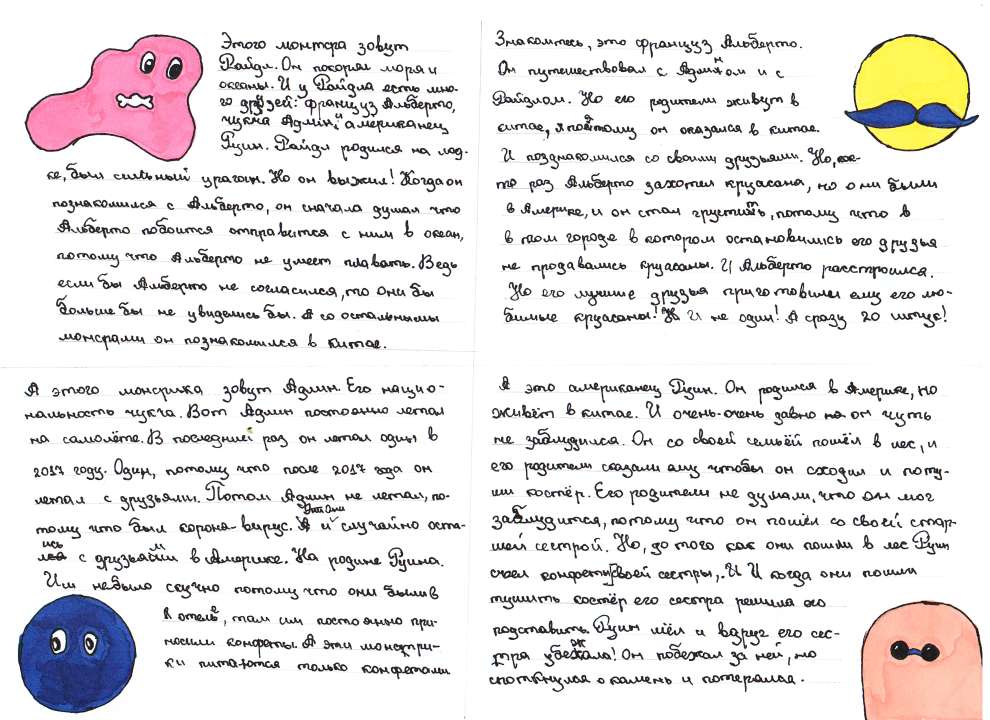 Этого монтра зовут
Райдл. Он покорял моря и
океаны. И у Райдла есть мно-
го друзей: француз Альберто,
чукча Админ, и американец
Руин. Райдл родился на лод-
ке, был сильный ураган. Но он выжил! Когда он
познакомился с Альберто, он сначала думал что
Альберто побоится отправится с ним в океан,
потому что Альберто не умеет плавать. Ведь
если бы Альберто не согласился, то они бы
больше бы не увиделись бы. А со остальными
монсрами он познакомился в китае.
Знакомтесь, это француз Альберто.
Он путешествовал с Админом и с
Райдлом. Но его родители живут в
китае, и поэтому он оказался в китае.
И позднакомился со своими друзьями. Но, как-
то раз Альберто захотел круасана, но они были
в Америке, и он стал грустить, потому что в
в том городе в котором остановились его друзья
не продавались круасаны. И Альберто расстроился.
Но его лучшие друзья приготовили ему его лю-
бимые круасаны! И не один! А сразу 20 штук!
А этого монсрика зовут Админ. Его нацио-
нальность чукча. Вот Админ постоянно летал
на самолёте. В последний раз он летал один в
2017 году. Один, потому что после 2017 года он
летал с друзьями. Потом Админ не летал, по-
тому что был корона-вирус. И они случайно оста-
лись с друзьями в Америке. На родине Руина.
Им небыло скучно потому что они были в
в отеле, там им постоянно при-
носили конфеты. А эти монстри-
ки питаются только конфетами
А это американец Руин. Он родился в Америке, но
живёт в китае. И очень-очень давно он чуть
не заблудился. Он со своей семьёй пошёл в лес, и
его родители сказали ему чтобы он сходил и поту-
шил костёр. Его родители не думали, что он мог
заблудится, потому что он пошёл со своей стар-
шей сестрой. Но, до того как они пошли в лес Руин
съел конфеты своей сестры,. И И когда они пошли
тушить костёр его сестра решила его
подставить. Руин шёл и вдруг его сес-
тра убежала! Он побежал за ней, но
споткнулся о камень и потерялся.